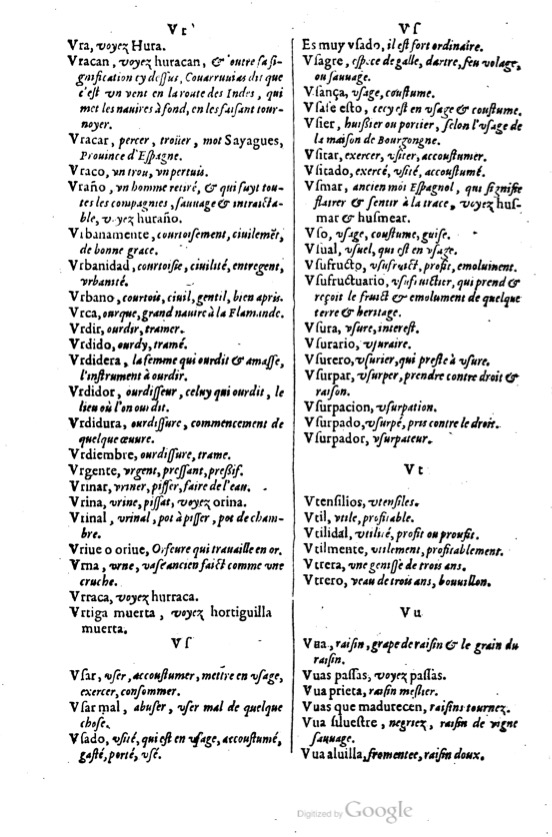 Vr
Vra, voyez Hura.
Vracan, voyez huracan, & outre sa si-
gnification cy dessus, Couarruuias dit que
c'est vn vent en la route des Indes, qui
met les nauires à fond, en les faisant tour-
noyer.
Vracar, percer, troüer, mot Sayagues,
Prouince d'Espagne.
Vraco, vn trou, vn pertuis.
Vraño, vn homme retiré, & qui fuyt tou-
tes les compagnies, sauuage & intraicta-
ble, voyez huraño.
Vrbanamente, courtoisement, ciuilemẽt,
de bonne grace.
Vrbanidad, courtoisie, ciuilité, entregent,
vrbanité.
Vrbano, courtois, ciuil, gentil, bien apris.
Vrca, ourque, grand nauire à la Flamande.
Vrdir, ourdir, tramer.
Vrdido, ourdy, tramé.
Vrdidera, la femme qui ourdit & amasse,
l'instrument à ourdir.
Vrdidor, ourdisseur, celuy qui ourdit, le
lieu où l'on ourdit.
Vrdidura, ourdissure, commencement de
quelque œuure.
Vrdiembre, ourdissure, trame.
Vrgente, vrgent, pressant, pressif.
Vrinar, vriner, pisser, faire de l'eau.
Vrina, vrine, pissat, voyez orina.
Vrinal, vrinal, pot à pisser, pot de cham-
bre.
Vriue o oriue, Orfeure qui trauaille en or.
Vrna, vrne, vase ancien faict comme vne
cruche.
Vrraca, voyez hurraca.
Vrtiga muerta, voyez hortiguilla
muerta.
Vſ
Vſar, vſer, accouſtumer, mettre en vſage,
exercer, conſommer.
Vſar mal, abuſer, vſer mal de quelque
choſe.
Vſado, vſité, qui eſt en vſage, accouſtumé,
gaſté, porté, vſé.
Vſ
Es muy vſado, il eſt fort ordinaire.
Vſagre, eſpece de galle, dartre, feu volage,
ou ſauuage.
Vſança, vſage, couſtume.
Vſaſe eſto, cecy eſt en vſage & couſtume.
Vſier, huiſſier ou portier, ſelon l'vſage de
la maiſon de Bourgongne.
Vſitar, exercer, vſiter, accouſtumer.
Vſitado, exercé, vſité, accouſtumé.
Vſmar, ancien mot Eſpagnol, qui ſignifie
flairer & ſentir à la trace, voyez huſ-
mar & huſmear.
Vſo, vſage, couſtume, guiſe.
Vſual, vſuel, qui eſt en vſage.
Vſufructo, vſufruict, profit, emolument.
Vſufructuario, vſufruictier, qui prend &
reçoit le fruict & emolument de quelque
terre & heritage.
Vſura, vſure, intereſt.
Vſurario, vſuraire.
Vſurero, vſurier, qui preſte à vſure.
Vſurpar, vſurper, prendre contre droit &
raiſon.
Vſurpacion, vſurpation.
Vſurpado, vſurpé, pris contre le droit.
Vſurpador, vſurpateur.
Vt
Vtenſilios, vtenſiles.
Vtil, vtile, profitable.
Vtilidal, vtilité, profit ou proufit.
Vtilmente, vtilement, profitablement.
Vtrera, vne geniſſe de trois ans.
Vtrero, veau de trois ans, bouuillon.
Vu
Vua, raiſin, grape de raiſin & le grain du
raiſin.
Vuas paſſas, voyez paſſas.
Vua prieta, raiſin meſlier.
Vuas que madurecen, raiſins tournez.
Vua ſilueſtre, negriez, raiſin de vigne
ſauuage.
Vua aluilla, fromentee, raiſin doux.
Digitized by Google